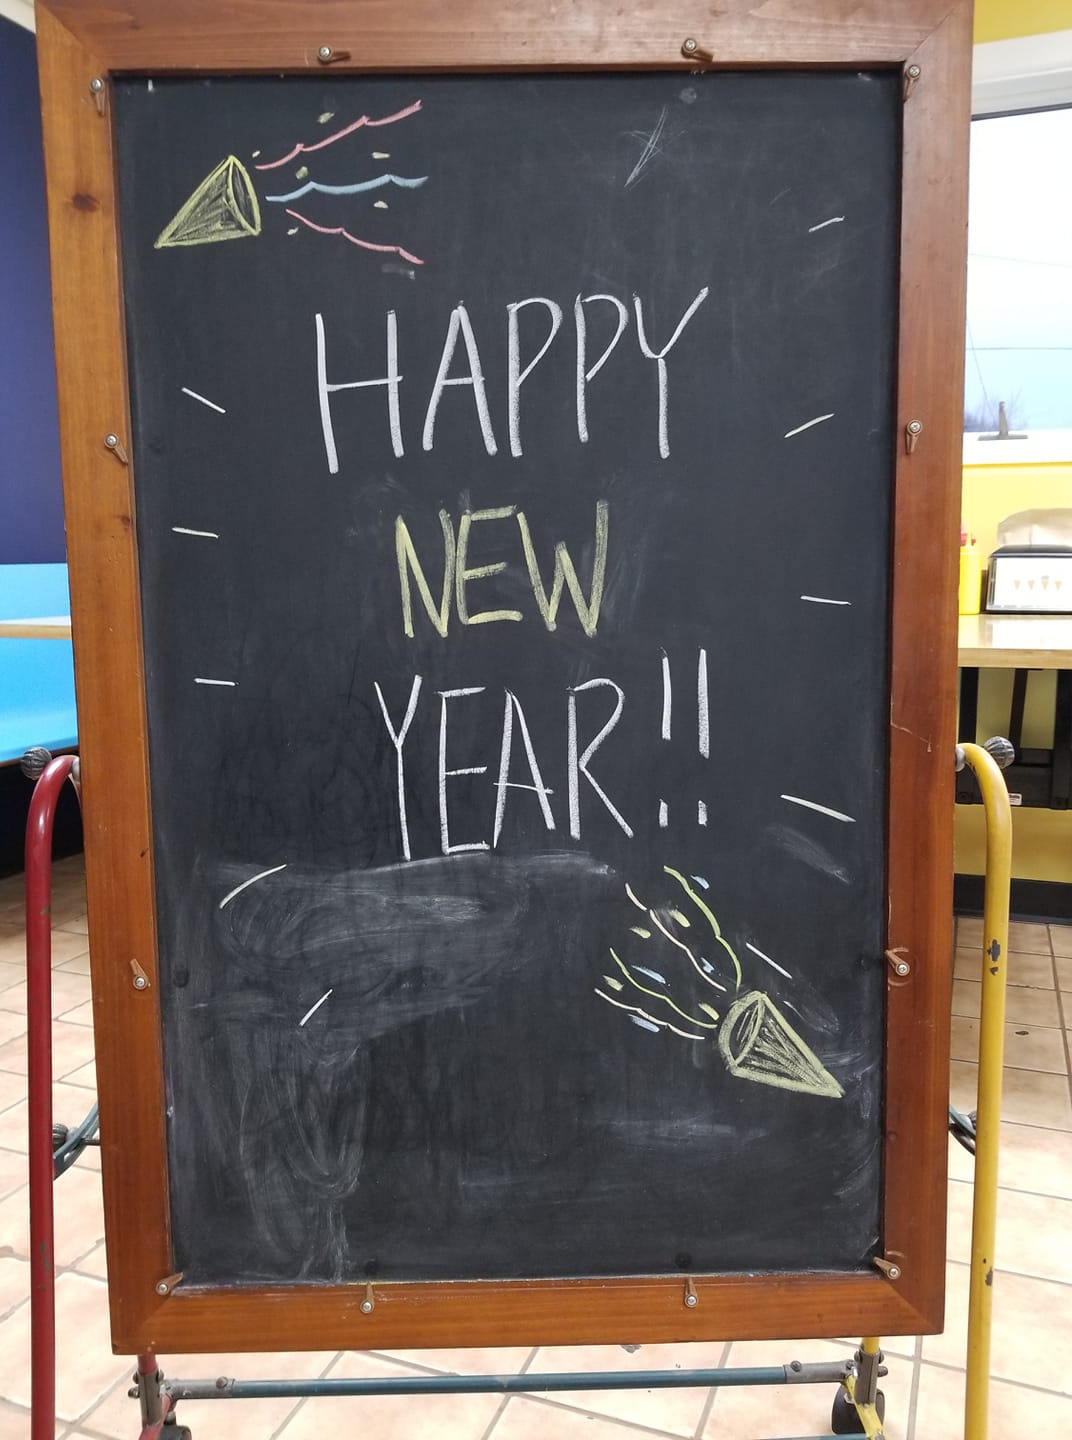 HAPPY
NEW
YEAR!!